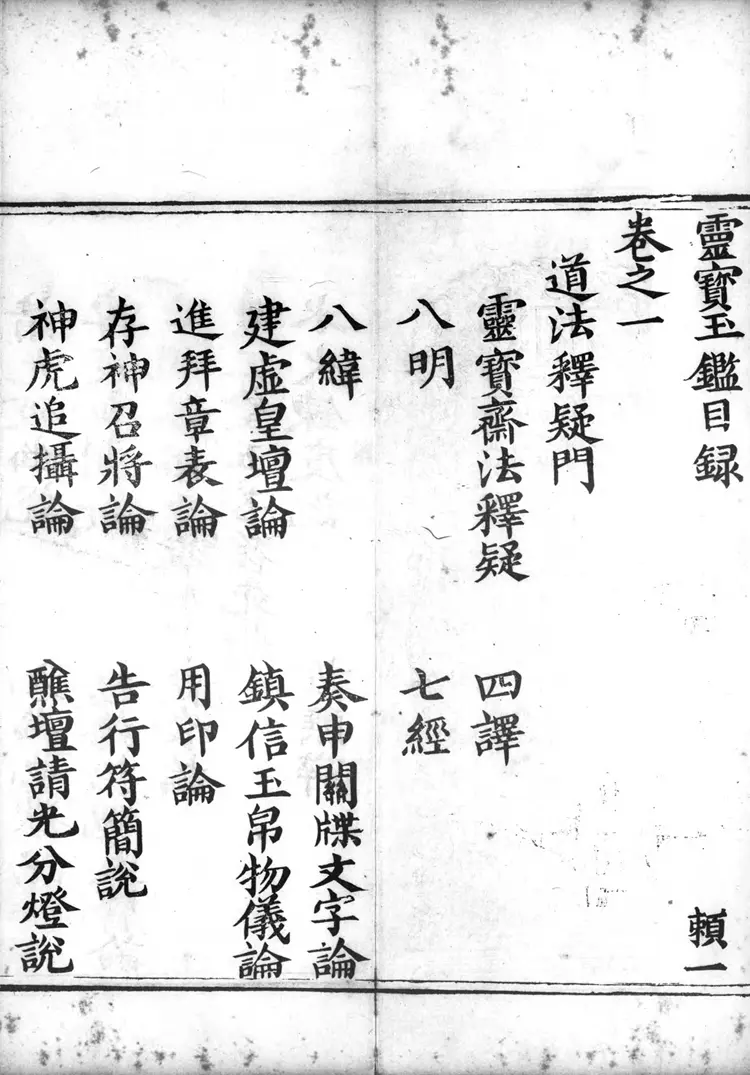 靈寶玉鑑目録 頼一
卷之一
道法釋疑門
靈寶齋法釋疑 四譯
八明 七經
八緯 奏申關牒文字論
建虛皇壇論 鎮信玉帛物儀論
進拜章表論 用印論
存神召將論 告行符簡說
神虎追攝論 醮壇請光分燈說